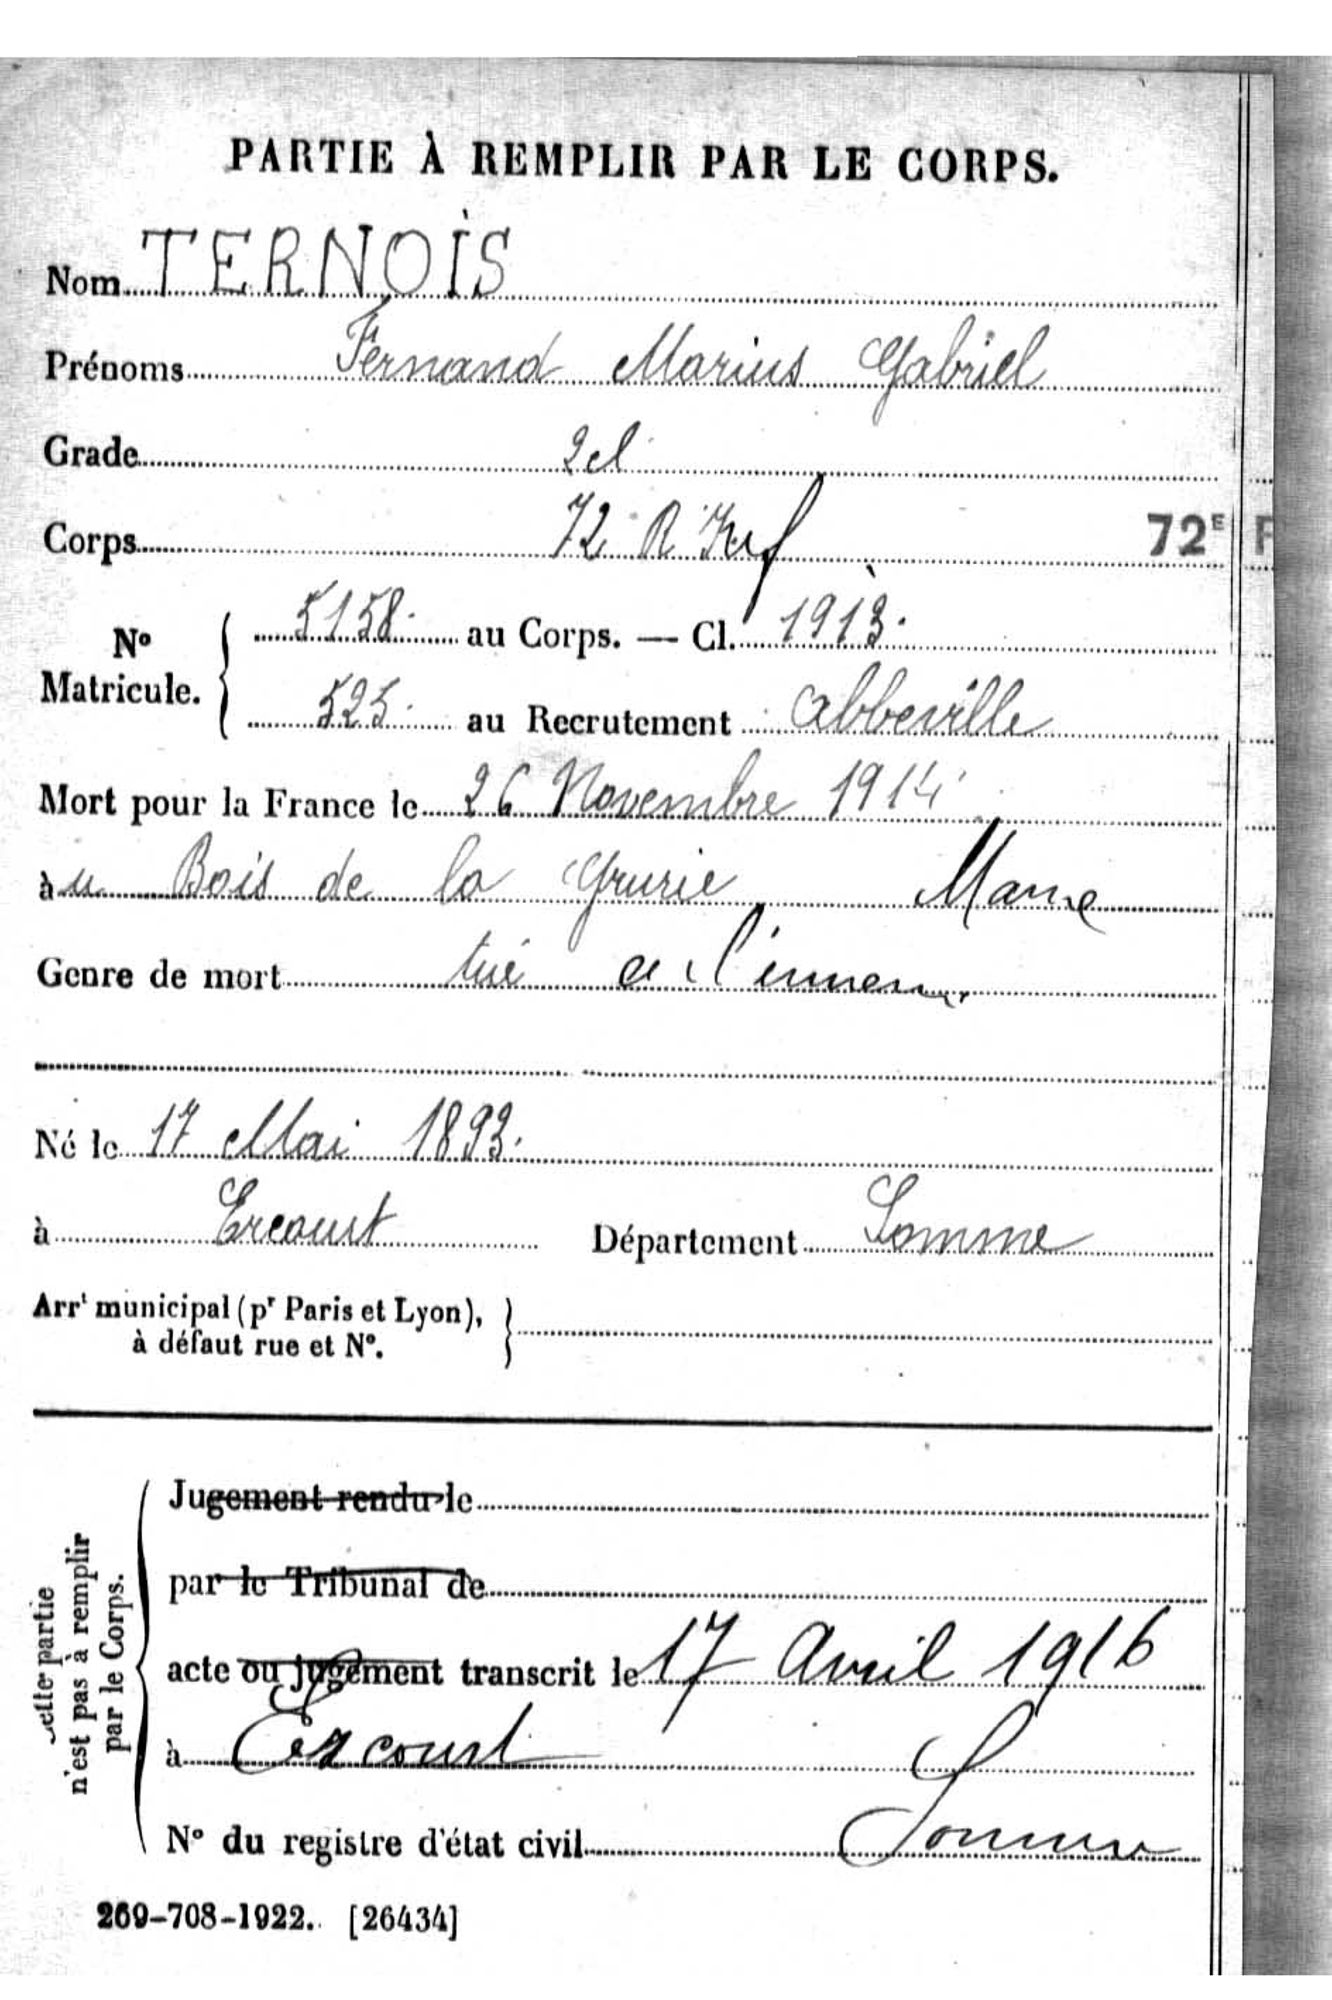 PARTIE À REMPLIR PAR LE CORPS.
Nom TERNOIS
Prénoms Fernand Marius Gabriel
Grade 2 cl
Corps 72 R Inf 72E
N° Matricule. 5158 au Corps. — Cl. 1913.
525 au Recrutement Abbeville
Mort pour la France le 26 Novembre 1914
àu Bois de la Grurie Marne
Genre de mort tué a l'ennemi
Né le 17 Mai 1893.
à Ercourt Département Somme
Arrt municipal (pr Paris et Lyon),
à défaut rue et N°.
Cette partie
n'est pas à remplir
par le Corps.
Jugement rendu le
par le Tribunal de
acte ou jugement transcrit le 17 Avril 1916
à Ercourt
N° du registre d'état civil Somme
269-708-1922. [26434]